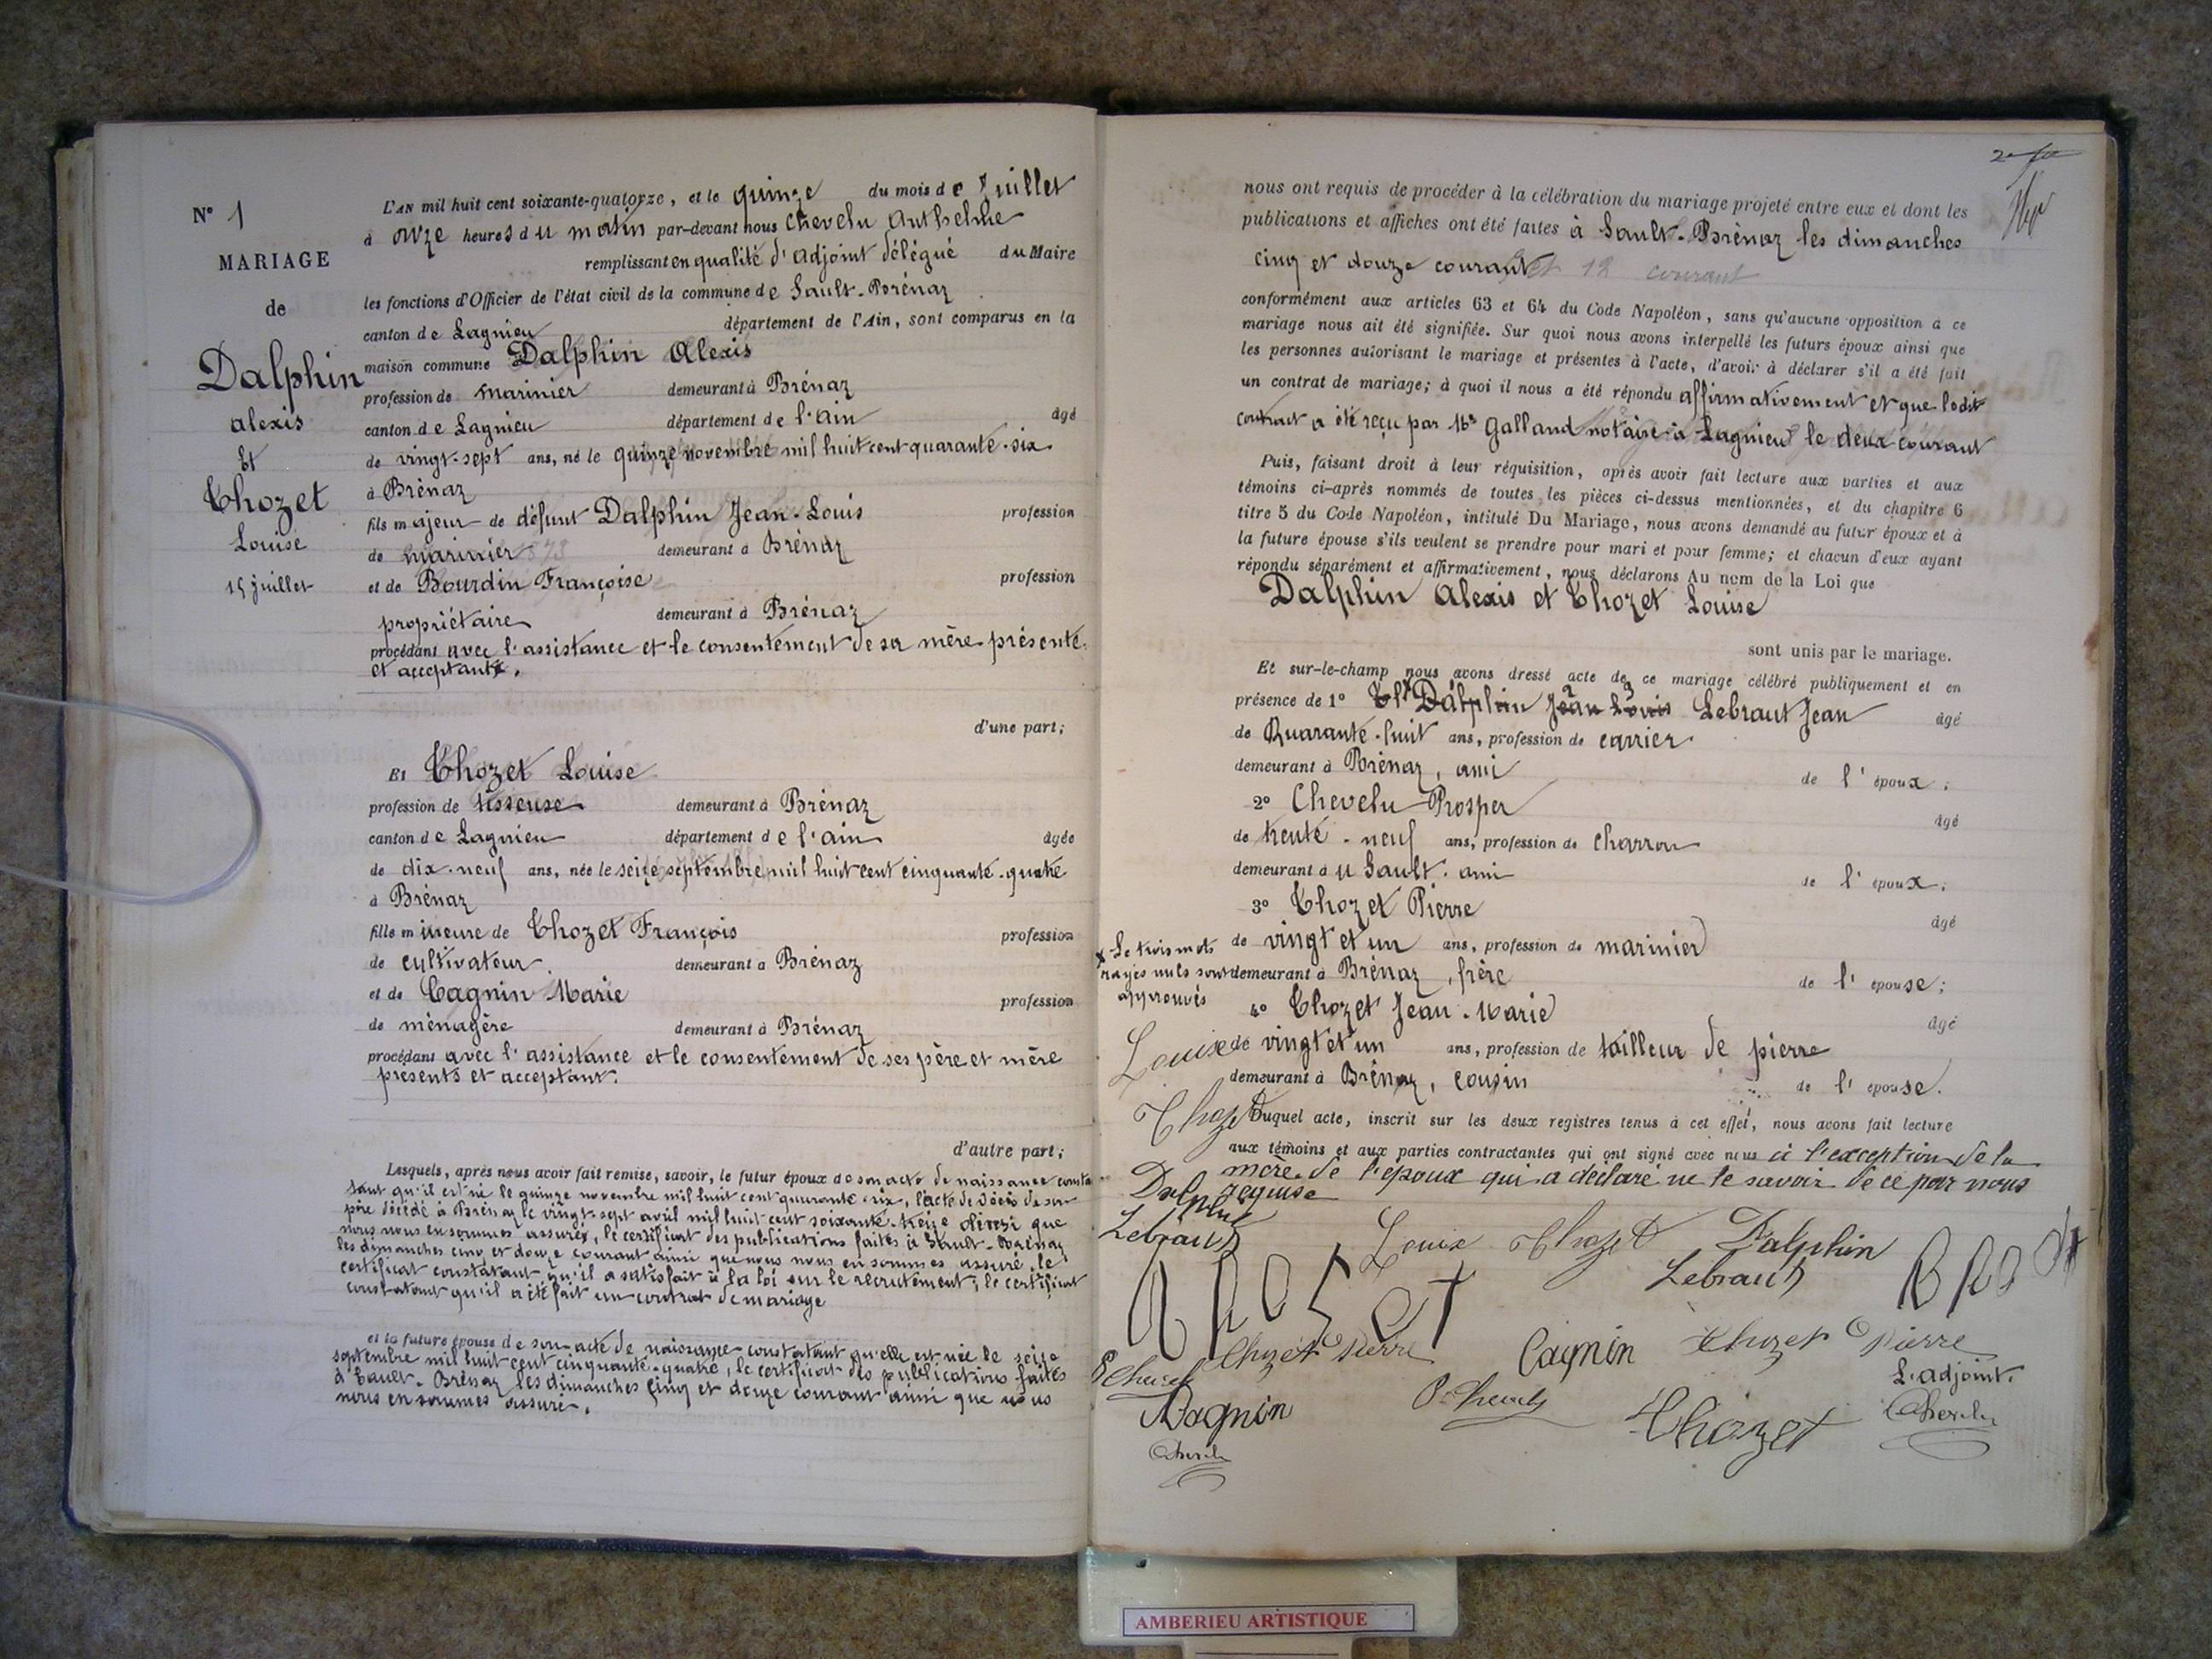 N° 1
MARIAGE
de
Dalphin
alexis
Et
Thozet
Louise
15 juillet
L'AN mil huit cent soixante-quatorze, et le quinze du mois de Juillet
à onze heures du matin par-devant nous Chevelu Anthelme
remplissant en qualité d'adjoint délégué du Maire
les fonctions d'Officier de l'état civil de la commune de Sault-Brénaz
canton de Lagnieu département de l'Ain, sont comparus en la
maison commune Dalphin Alexis
profession de marinier demeurant à Brénaz
canton de Lagnieu département de l'ain âgé
de vingt-sept ans, né le quinze novembre mil huit cent quarante-six
à Brénaz
fils majeur de défunt Dalphin Jean-Louis profession
de marinier demeurant à Brénaz
et de Bourdin Françoise profession
propriétaire demeurant à Brénaz
procédant avec l'assistance et le consentement de sa mère présente
et acceptante.
d'une part;
Et Thozet Louise
profession de tisseuse demeurant à Brénaz
canton de Lagnieu département de l'ain âgée
de dix-neuf ans, née le seize septembre mil huit cent cinquante-quatre
à Brénaz
fille mineure de Thozet François profession
de cultivateur demeurant à Brénaz
et de Cagnin Marie profession
de ménagère demeurant à Brénaz
procédant avec l'assistance et le consentement de ses père et mère
présents et acceptant.
d'autre part;
Lesquels, après nous avoir fait remise, savoir, le futur époux de son acte de naissance consta
tant qu'il est né le quinze novembre mil huit cent quarante-six, l'acte de décès de son
père décédé à Brénaz le vingt-sept avril mil huit cent soixante-treize ainsi que
nous nous en sommes assuré, le certificat des publications faites à Sault-Brénaz
les dimanches cinq et douze courant ainsi que nous nous en sommes assuré, le
certificat constatant qu'il a satisfait à la loi sur le recrutement; le certificat
constatant qu'il a été fait un contrat de mariage
et la future épouse de son acte de naissance constatant qu'elle est née le seize
septembre mil huit cent cinquante-quatre, le certificat des publications faites
à Sault-Brénaz les dimanches cinq et douze courant ainsi que nous
nous en sommes assuré.
nous ont requis de procéder à la célébration du mariage projeté entre eux et dont les
publications et affiches ont été faites à Sault-Brénaz les dimanches
cinq et douze courant
conformément aux articles 63 et 64 du Code Napoléon, sans qu'aucune opposition à ce
mariage nous ait été signifiée. Sur quoi nous avons interpellé les futurs époux ainsi que
les personnes autorisant le mariage et présentes à l'acte, d'avoir à déclarer s'il a été fait
un contrat de mariage; à quoi il nous a été répondu affirmativement et que ledit
contrat a été reçu par Me Galland notaire à Lagnieu le deux courant
Puis, faisant droit à leur réquisition, après avoir fait lecture aux parties et aux
témoins ci-après nommés de toutes les pièces ci-dessus mentionnées, et du chapitre 6
titre 5 du Code Napoléon, intitulé Du Mariage, nous avons demandé au futur époux et à
la future épouse s'ils veulent se prendre pour mari et pour femme; et chacun d'eux ayant
répondu séparément et affirmativement, nous déclarons Au nom de la Loi que
Dalphin Alexis et Thozet Louise
sont unis par le mariage.
Et sur-le-champ nous avons dressé acte de ce mariage célébré publiquement et en
présence de 1° Dalphin Jean Louis Lebraut Jean âgé
de Quarante-huit ans, profession de carrier
demeurant à Brénaz, ami de l'époux;
2° Chevelu Prosper âgé
de trente-neuf ans, profession de charron
demeurant au Sault. ami de l'époux;
3° Thozet Pierre âgé
de vingt et un ans, profession de marinier
demeurant à Brénaz, frère de l'épouse;
4° Thozet Jean-Marie âgé
de vingt et un ans, profession de tailleur de pierre
demeurant à Brénaz, cousin de l'épouse.
x Le trois mots
rayés nuls sont
approuvés
Duquel acte, inscrit sur les deux registres tenus à cet effet, nous avons fait lecture
aux témoins et aux parties contractantes qui ont signé avec nous à l'exception de la
mère de l'époux qui a déclaré ne le savoir de ce par nous
requise
Louise
Thozet
Dalphin
Lebraut
Louise Thozet Dalphin
Lebraut
Thozet Pierre Cagnin Thozet Pierre
L'adjoint.
P. Chevelu
Cagnin P. Chevelu Thozet Chevelu
Chevelu
AMBERIEU ARTISTIQUE